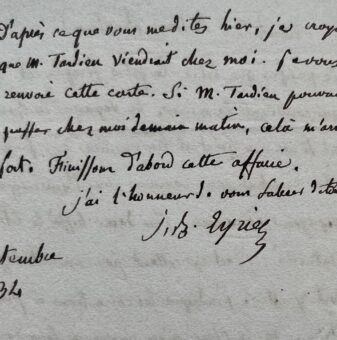 D'après ce que vous me dites hier, je croy
que M. Tardieu viendrait chez moi. Je vous
renvoie cette carte. Si M. Tardieu pouva
passer chez moi demain matin, celà m'arr
fort. Finissons d'abord cette affaire.
j'ai l'honneur d. vous saluer
J. B. Eyriès
tembre
34